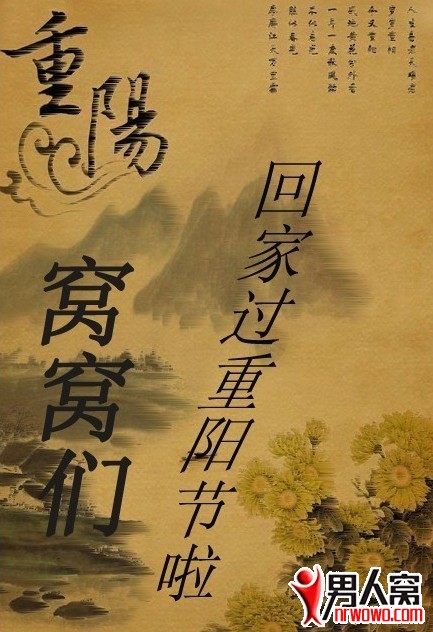 人生易老天难老
岁岁重阳
今又重阳
战地黄花分外香
一年一度秋风劲
不似春光
胜似春光
寥廓江天万里霜
重陽
回家过重阳节啦
窝窝们
男人窝
nrwowo.com